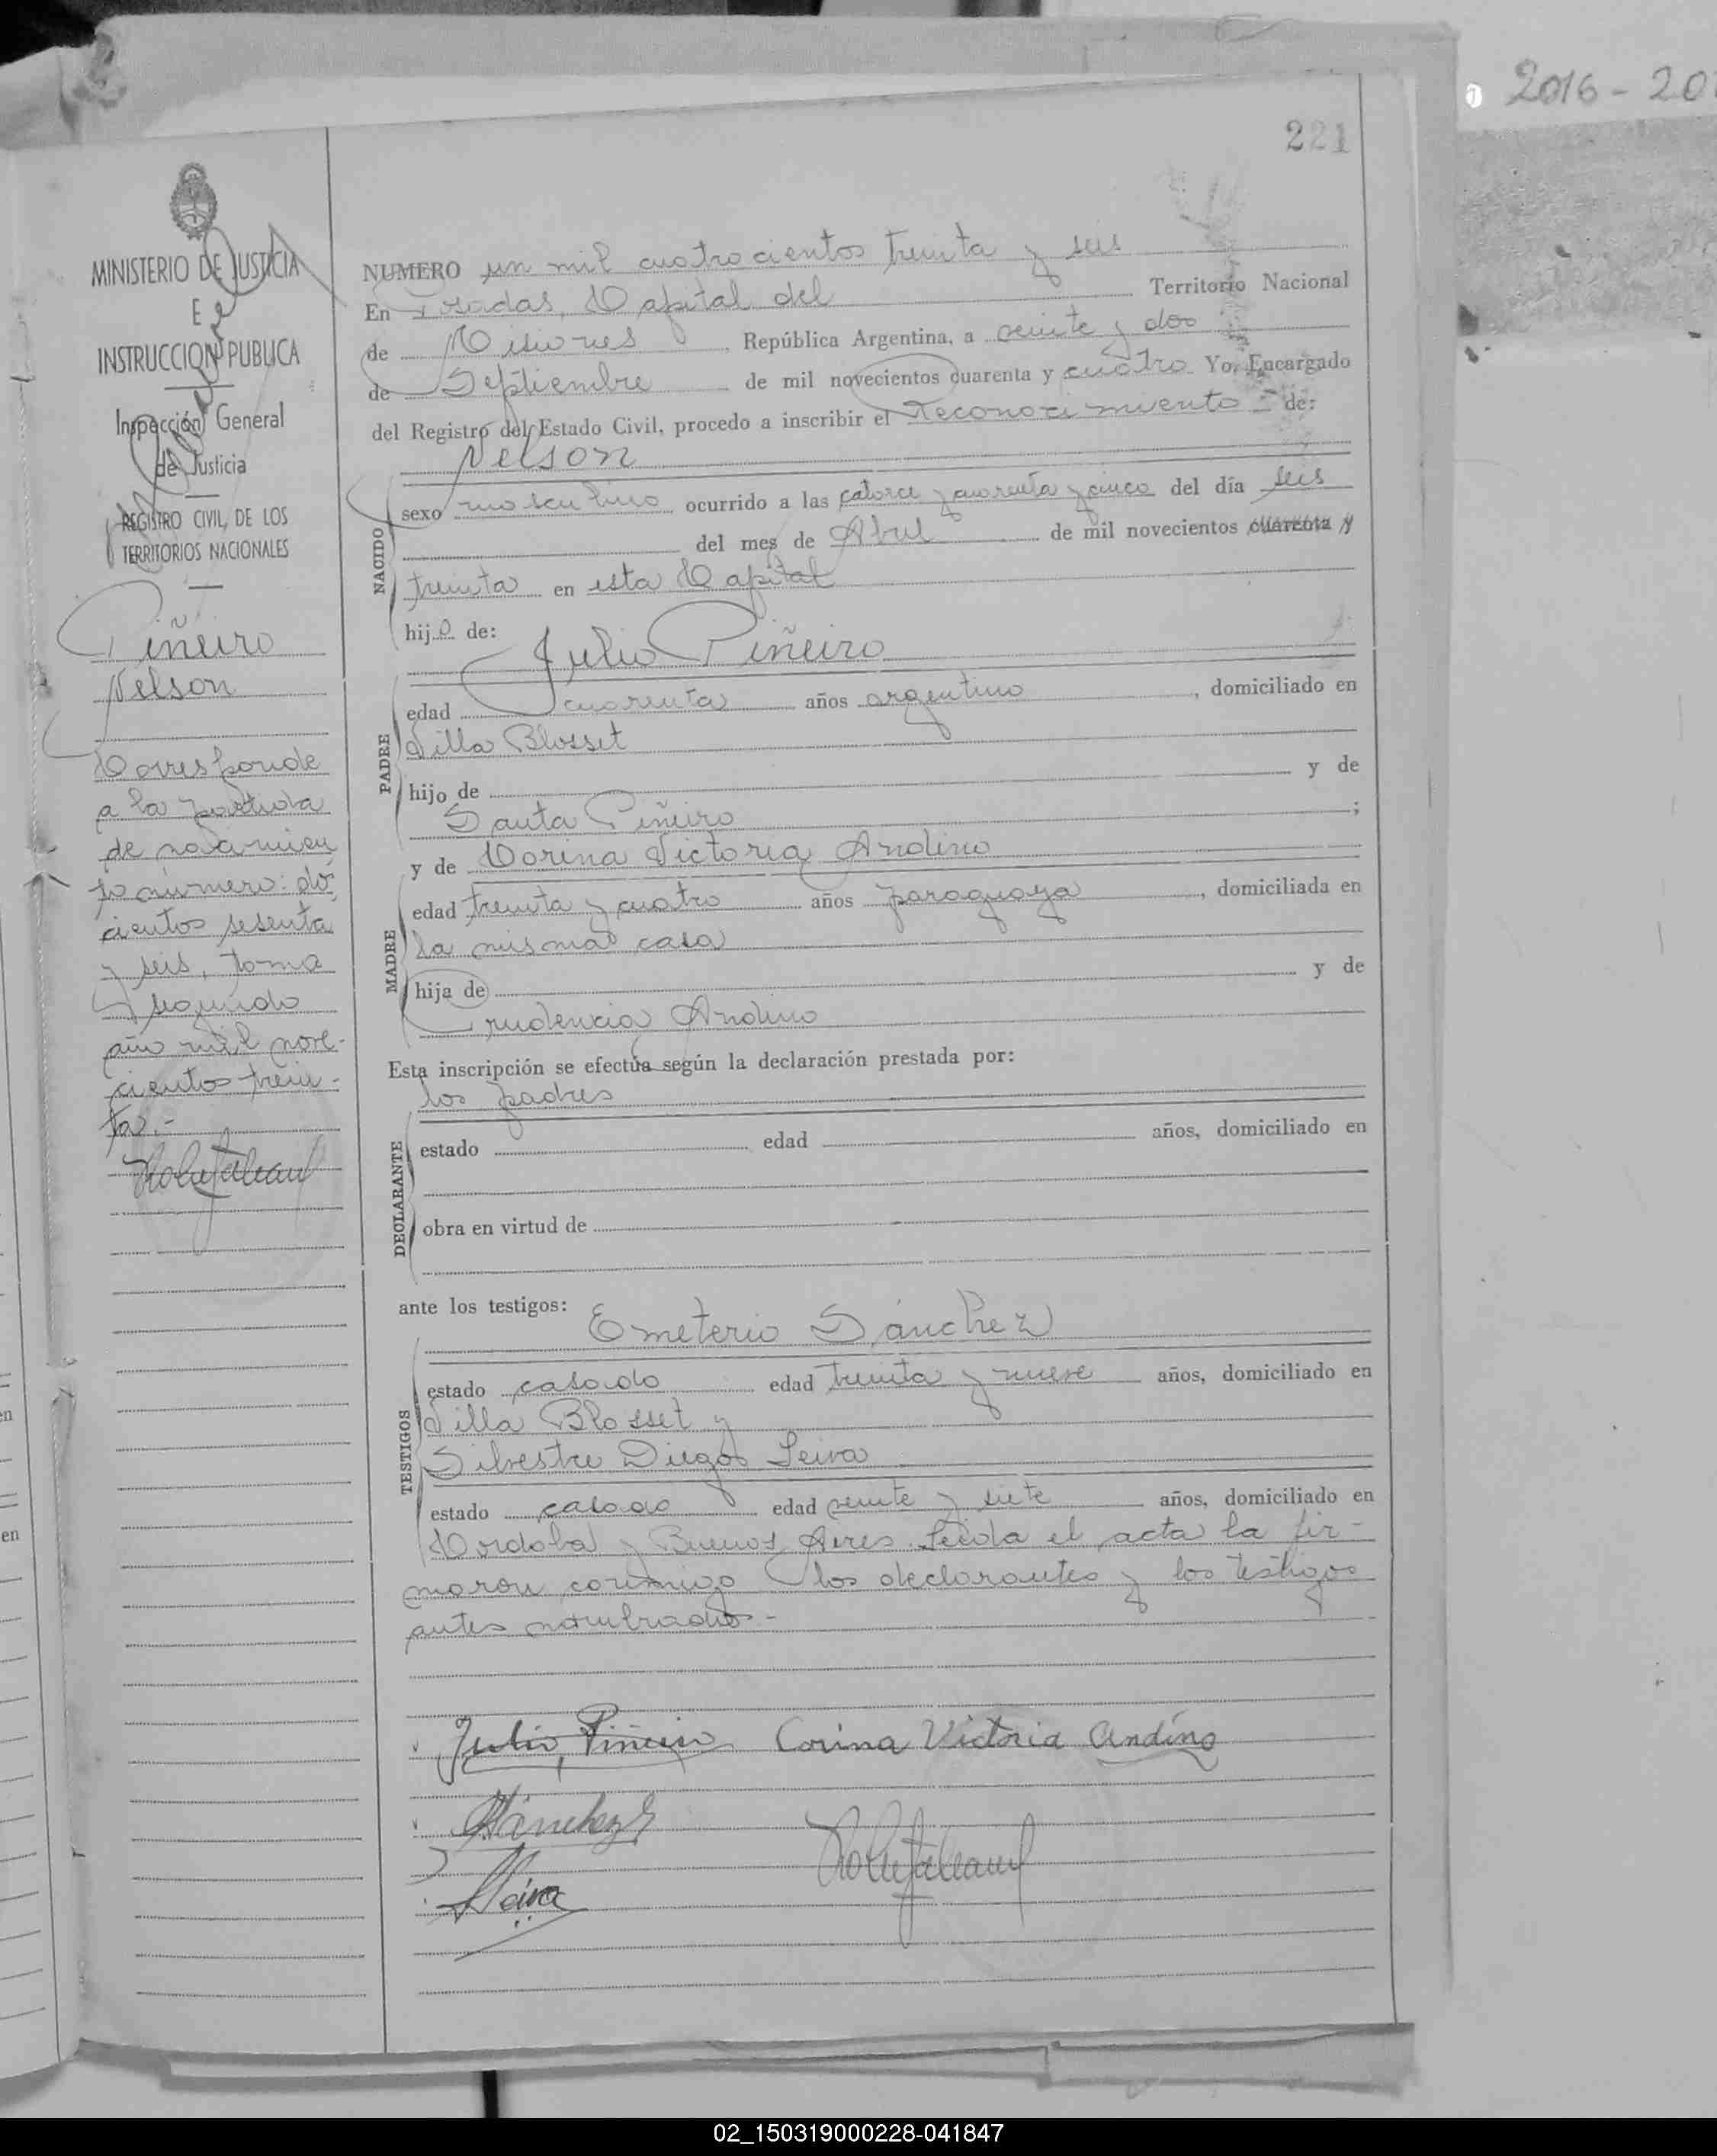 2016 - 20
221
MINISTERIO DE JUSTICIA
E
INSTRUCCION PUBLICA
Inspección General
de Justicia
REGISTRO CIVIL DE LOS
TERRITORIOS NACIONALES
Piñeiro
Nelson
Corresponde
a la partida
de nacimien
to número: dos
cientos sesenta
y seis, tomo
segundo
año mil nove-
cientos trein-
ta.-
NUMERO un mil cuatrocientos treinta y seis
En Posadas, Capital del Territorio Nacional
de Misiones, República Argentina, a veinte y dos
de Septiembre de mil novecientos cuarenta y cuatro Yo, Encargado
del Registro del Estado Civil, procedo a inscribir el Reconocimiento de:
Nelson
NACIDO
sexo masculino ocurrido a las catorce y cuarenta y cinco del día seis
del mes de Abril de mil novecientos cuarenta y
treinta en esta Capital
hijo de:
Julio Piñeiro
PADRE
edad cuarenta años argentino, domiciliado en
Villa Blosset
hijo de y de
Santa Piñeiro;
y de Corina Victoria Andino
MADRE
edad treinta y cuatro años paraguaya, domiciliada en
la misma casa
hija de y de
Prudencia Andino
Esta inscripción se efectúa según la declaración prestada por:
los padres
DECLARANTE
estado edad años, domiciliado en
obra en virtud de
ante los testigos:
Emeterio Sánchez
TESTIGOS
estado casado edad treinta y nueve años, domiciliado en
Villa Blosset y
Silvestre Diego Leiva
estado casado edad veinte y siete años, domiciliado en
Cordoba y Buenos Aires. Leida el acta la fir-
maron conmigo los declarantes y los testigos
antes nombrados.-
Julio Piñeiro Corina Victoria Andino
Sánchez
Leiva
en
en
02_150319000228-041847